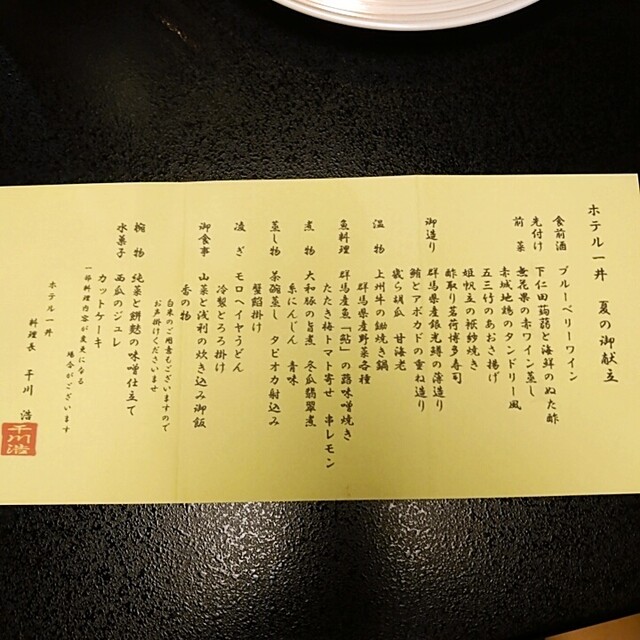 ホテル一井 夏の御献立
食前酒 ブルーベリーワイン
先付け 下仁田蒟蒻と海鮮のぬた酢
前菜 無花果の赤ワイン蒸し
赤城地鶏のタンドリー風
五三竹のあおさ揚げ
姫帆立の袱紗焼き
酢取り茗荷博多寿司
御造り 群馬県産銀光鱒の薄造り
鮪とアボカドの重ね造り
我ら胡瓜 甘海老
温物 上州牛の鋤焼き鍋
群馬県産野菜各種
魚料理 群馬産魚「鮎」の蕗味噌焼き
たたき梅トマト寄せ 串レモン
煮物 大和豚の旨煮 冬瓜翡翠煮
糸にんじん 青味
蒸し物 茶碗蒸し タピオカ射込み
蟹餡掛け
凌ぎ モロヘイヤうどん
冷製とろろ掛け
御食事 山菜と浅利の炊き込み御飯
香の物
白米のご用意もございますので
お声掛けくださいませ
椀物 純菜と餅麩の味噌仕立て
水菓子 西瓜のジュレ
カットケーキ
一部料理内容が変更になる
場合がございます
ホテル一井
料理長 干川 浩
干川浩